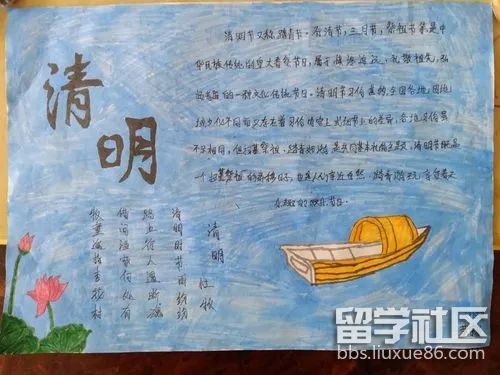 清明
清明节又称踏青节、行清节、三月节、祭祖节等,是中
华民族传统隆重盛大春祭节日,属于慎终追远、礼敬祖先、弘
扬孝道的一种文化传统节日。清明节习俗是全国各地因地
域文化不同而又存在着习俗内容上或细节上的差异,各地习俗虽
不尽相同,但扫墓祭祖、踏青郊游是共同基本礼俗主题。清明节既是
一个扫墓祭祖的肃穆日子,也是人们亲近自然、踏青游玩、享受春天
乐趣的欢乐节日。
清明 杜牧
清明时节雨纷纷
路上行人欲断魂
借问酒家何处有
牧童遥指杏花村
留学社区
bbs.liuxue86.com